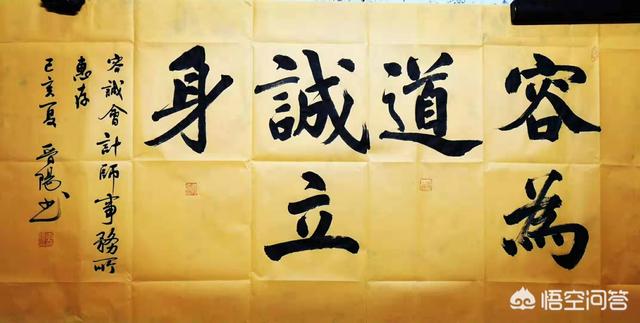 容為
道
誠立
身
容誠會計師事務所
惠存
己亥夏 晉陽書
悟空问答